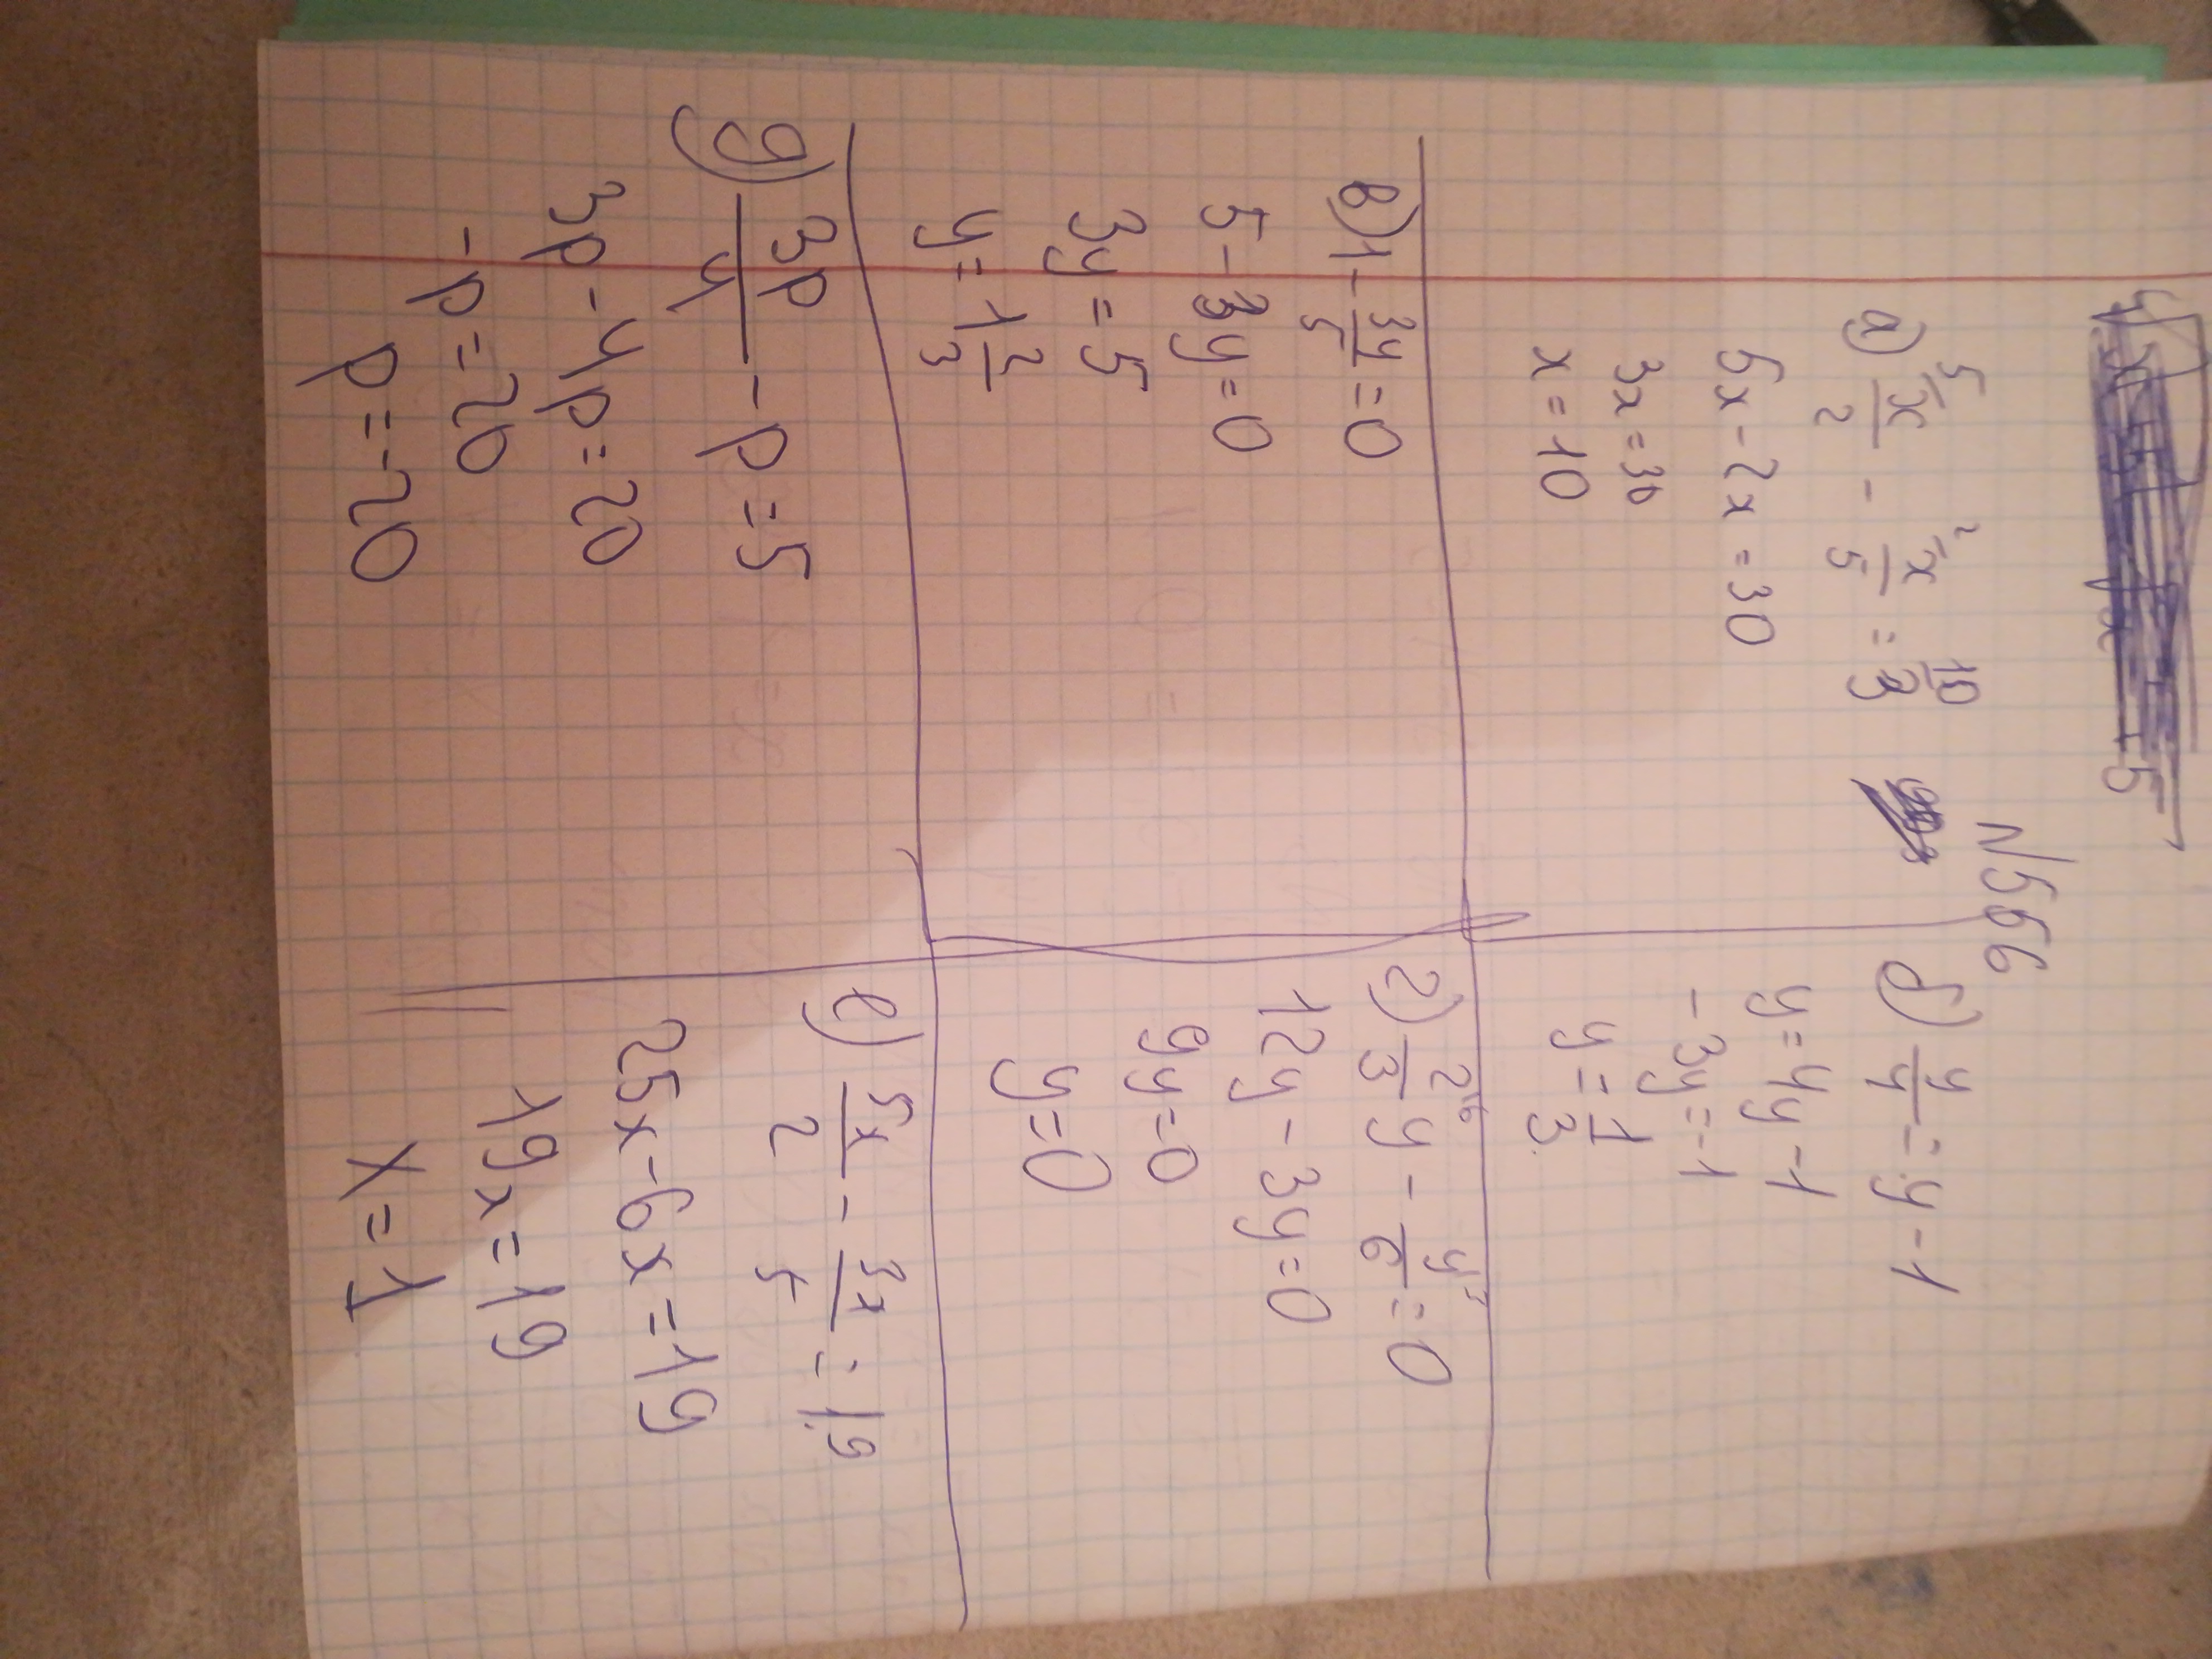 N566
а) ⁵x/2 - ²x/5 = ¹⁰3
5x - 2x = 30
3x = 30
x = 10
б) y/4 = y - 1
y = 4y - 1
-3y = -1
y = 1/3
в) 1 - 3y/5 = 0
5 - 3y = 0
3y = 5
y = 1 2/3
г) 2/3 y - y/6 = 0
12y - 3y = 0
9y = 0
y = 0
д) 3p/4 - p = 5
3p - 4p = 20
-p = 20
p = -20
е) 5x/2 - 3x/5 = 1,9
25x - 6x = 19
19x = 19
x = 1